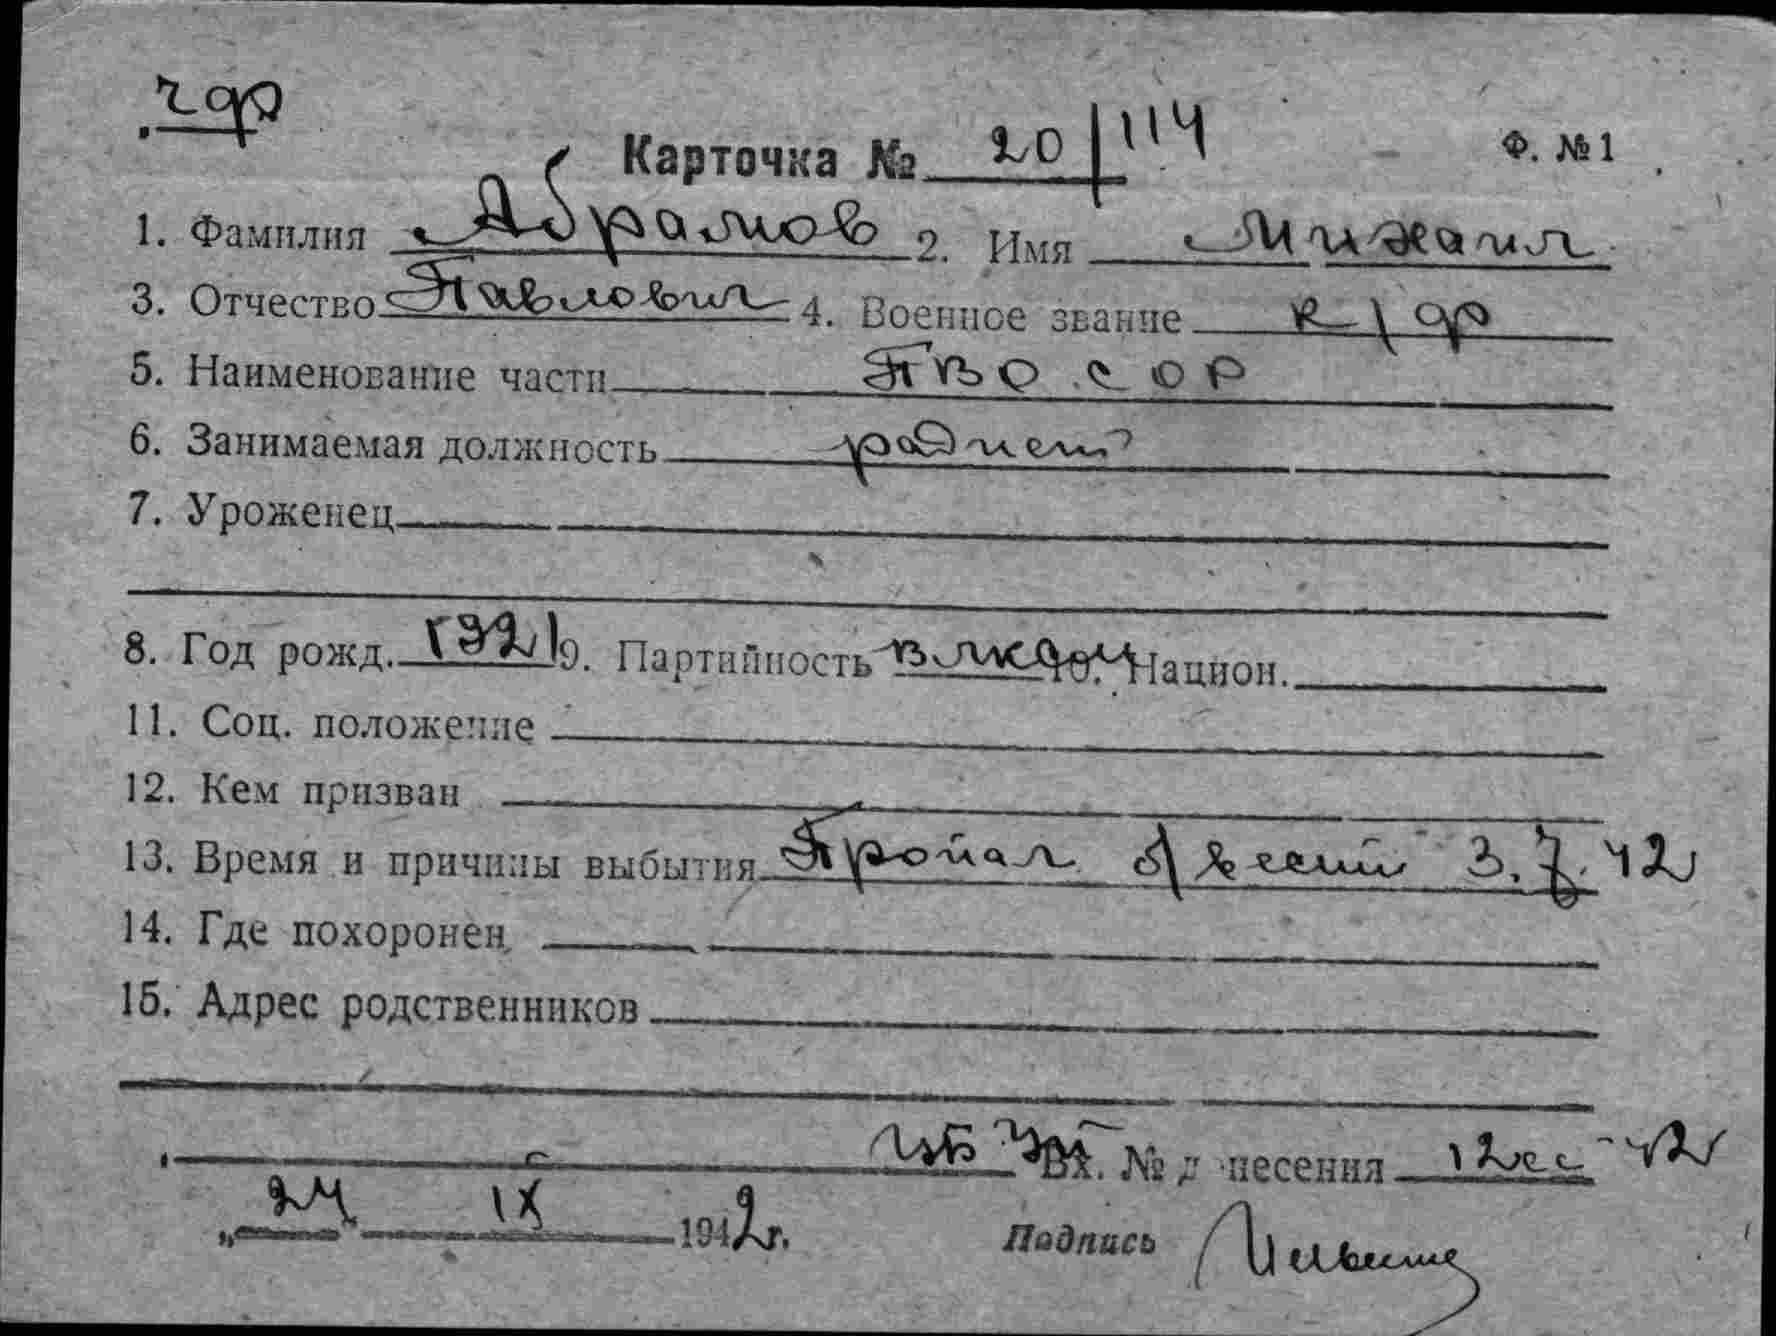 чф
Карточка № 20/114 Ф. № 1
1. Фамилия Абрамов 2. Имя Михаил
3. Отчество Павлович 4. Военное звание к/ф
5. Наименование части ПВО СОР
6. Занимаемая должность радист
7. Уроженец
8. Год рожд. 1921 9. Партийность ВЛКСМ 10. Национ.
11. Соц. положение
12. Кем призван
13. Время и причины выбытия Пропал б/вести 3.7.42
14. Где похоронен
15. Адрес родственников
Вх. № д несения 12сс-42
„24" IX 1942г. Подпись